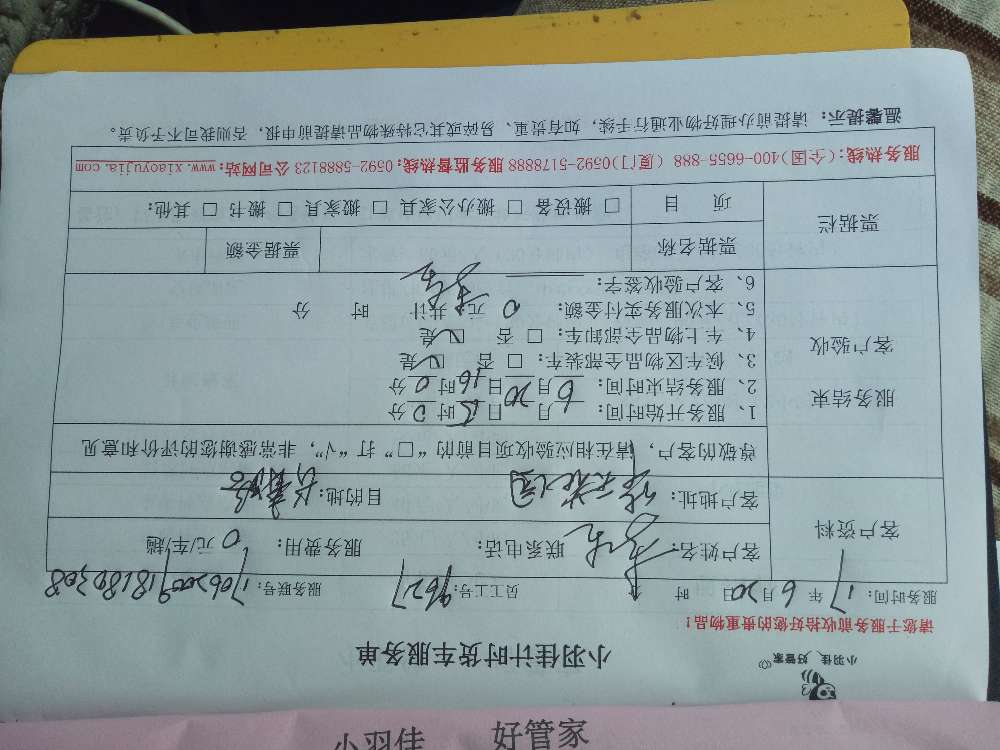 小羽佳 好管家
小羽佳 好管家
小羽佳计时货车服务单
请您于服务前收拾好您的贵重物品！
服务时间：17年6月20日 时 员工工号：9627 服务联号：
客户资料
客户姓名： 联系电话： 服务费用：0元/车/趟
客户地址： 目的地：
服务结束
客户验收
尊敬的客户，请在相应验收项目前的“□”打“√”，非常感谢您的评价和意见
1、服务开始时间：6月20日15时0分
2、服务结束时间：6月20日16时0分
3、候车区物品全部装车：□ 否 ☑ 是
4、车上物品全部卸车：□ 否 ☑ 是
5、本次服务实付金额：0元 共计 时 分
6、客户验收签字：
票据栏
票据名称 票据金额
项 目 □ 搬设备 □ 搬办公家具 □ 搬家具 □ 搬书 □ 其他：
服务热线：(全国)400-6655-888 (厦门)0592-5178888 服务监督热线：0592-5888123 公司网站：www.xiaoyujia.com
温馨提示：请提前办理好物业通行手续，如有贵重、易碎或其它特殊物品请提前申报，否则我司不予负责。